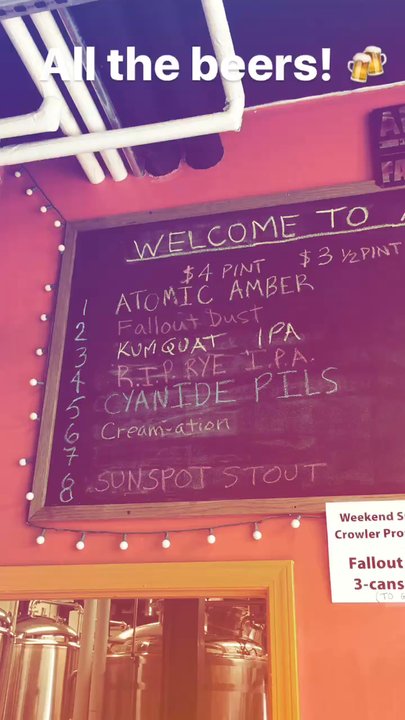 All the beers! 🍻
WELCOME TO
$4 PINT $3 ½ PINT
1 ATOMIC AMBER
2 Fallout Dust
3 KUMQUAT IPA
4 R.I.P RYE I.P.A.
5 CYANIDE PILS
6 Cream-ation
7
8 SUNSPOT STOUT
Weekend S
Crowler Pro
Fallout
3-cans
(TO